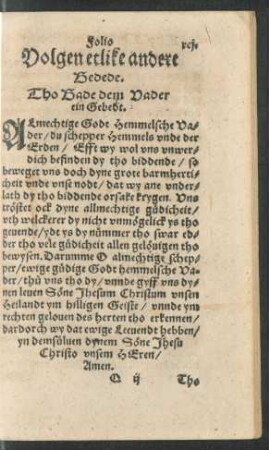 Folio xcj.
Volgen etlike andere
Bedede.
Tho Gade dem Vader
ein Gebedt.
ALmechtige Godt Hemmelsche Va-
der / du schepper Hemmels vnde der
Erden / Efft wy wol vns vnwer-
dich befinden dy tho biddende / so
beweget vns doch dyne grote barmherti-
cheit vnde vnse nodt / dat wy ane vnder-
lath dy tho biddende orsake krygen. Vns
tröstet ock dyne allmechtige güdicheit /
vth welckerer dy nicht vnmögelick ys tho
geuende / ydt ys dy nümmer tho swar ed-
der tho vele güdicheit allen gelöuigen tho
bewysen. Darumme O almechtige schep-
per / ewige güdige Godt hemmelsche Va-
der / thů vns tho dy / vnnde gyff vns dy-
nen leuen Söne Jhesum Christum vnsen
Heilandt ym hilligen Geiste / vnnde ynn
rechten gelouen des herten tho erkennen /
dardorch wy dat ewige Leuendt hebben /
yn demsüluen dynem Söne Jhesu
Christo vnsem HEren /
Amen.
Q ij Tho